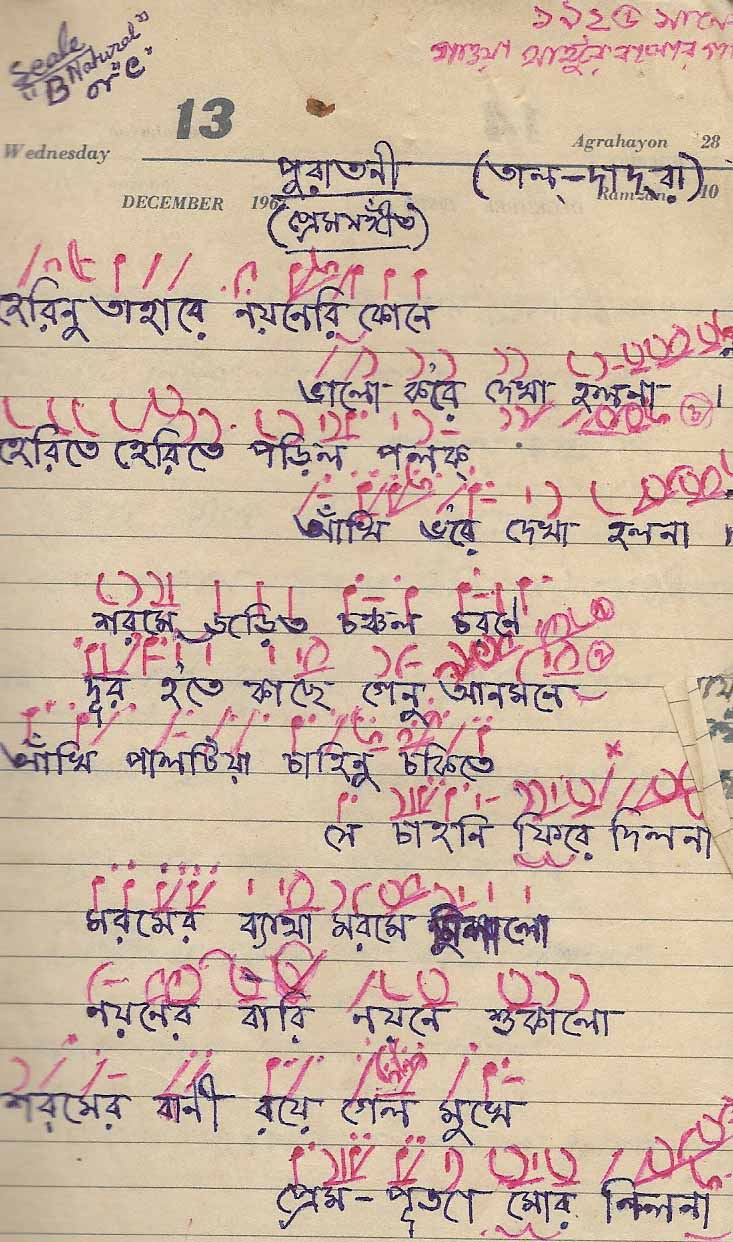 Scale
"B Natural"
or "C"
১৯২৫ সালে
গাওয়া
13
Wednesday
Agrahayon 28
DECEMBER 196
Ramzan 10
পুরাতনী (তাল-দাদরা)
(প্রেমসঙ্গীত)
হেরিনু তাহারে নয়নেরি কোনে
ভালো ক'রে দেখা হলনা ।
হেরিতে হেরিতে পড়িল পলক্
আঁখি ভ'রে দেখা হলনা ।
শরমে জড়িত চঞ্চল চরনে
দূর হ'তে কাছে গেনু আনমনে
আঁখি পালটিয়া চাহিনু চকিতে
সে চাহনি ফিরে দিলনা
মরমের ব্যাথা মরমে লুকালো
নয়নের বারি নয়নে শুকালো
শরমের বানী রয়ে গেল মুখে
প্রেম - মোর নিলনা